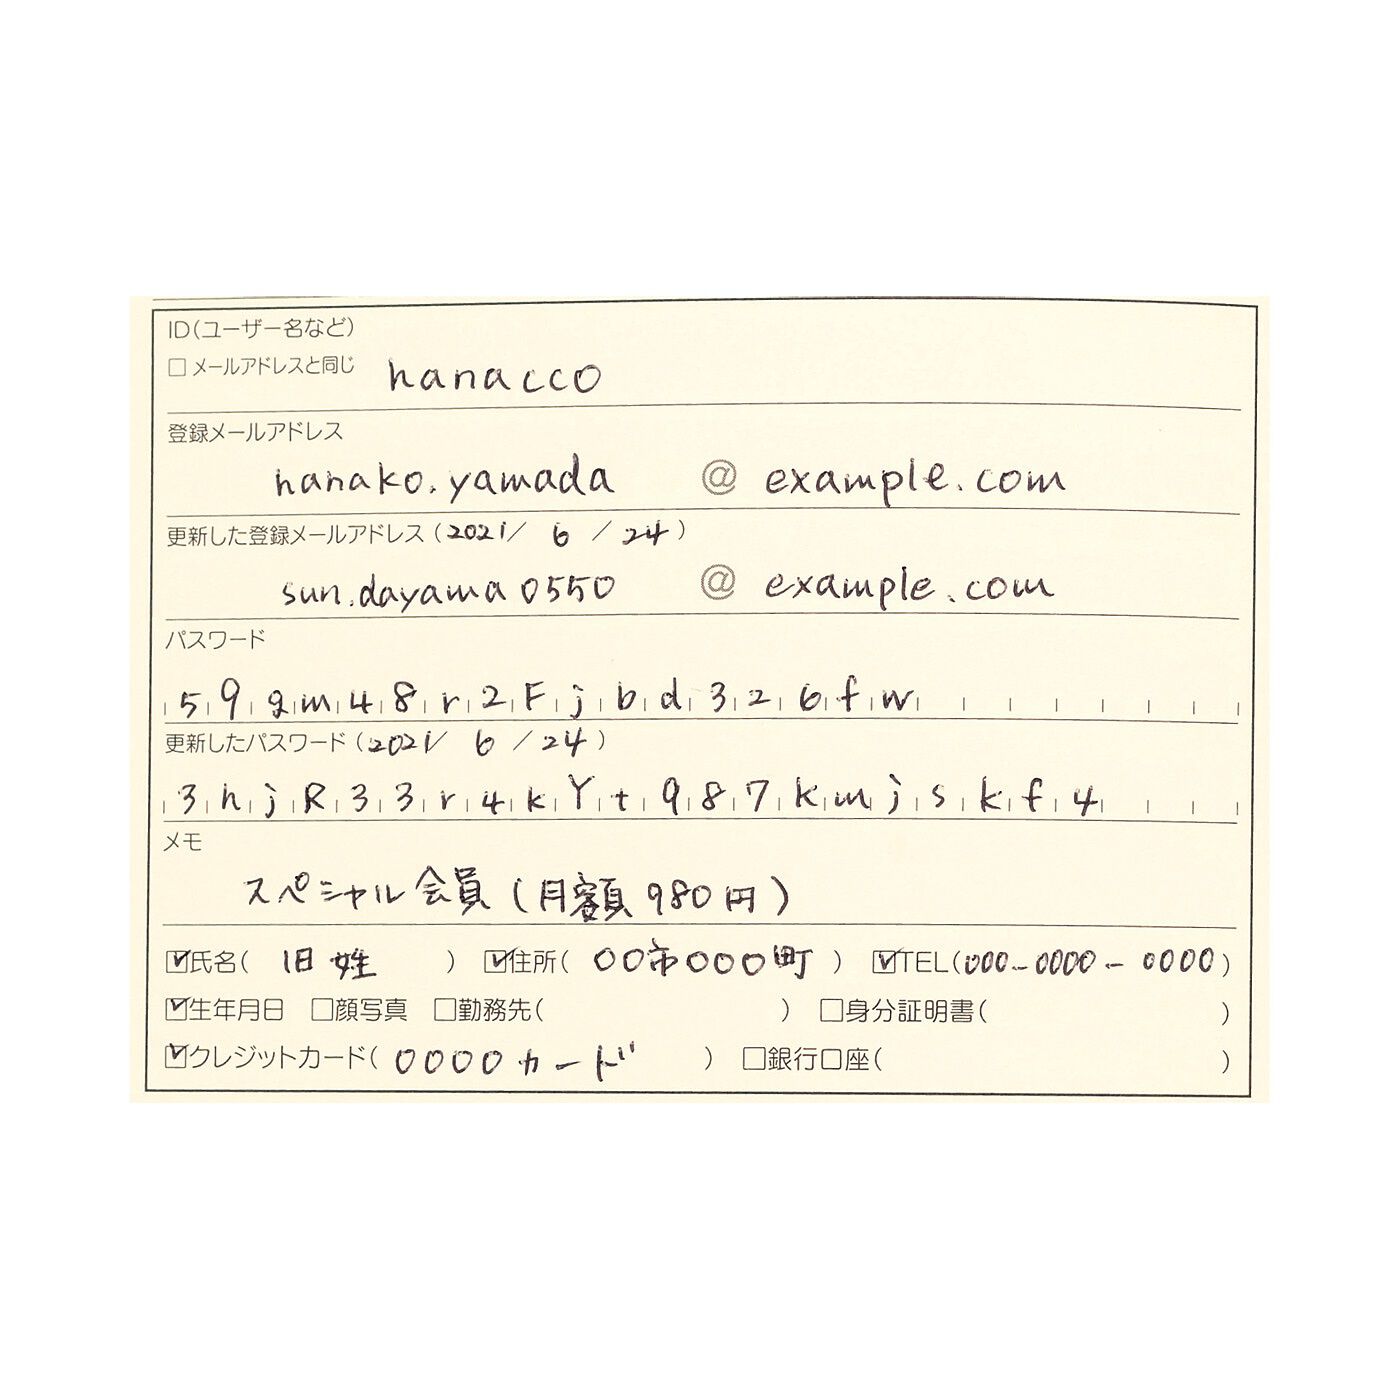 ID(ユーザー名など)
□ メールアドレスと同じ hanacco
登録メールアドレス
hanako.yamada @ example.com
更新した登録メールアドレス (2021/ 6 / 24)
sun.dayama0550 @ example.com
パスワード
59gm48r2Fjbd326fw
更新したパスワード (2021/ 6 / 24)
3hjR33r4kYt987kmjskf4
メモ
スペシャル会員(月額980円)
☑氏名( 旧姓 ) ☑住所( 〇〇市〇〇〇町 ) ☑TEL(000-0000-0000)
☑生年月日 □顔写真 □勤務先( ) □身分証明書( )
☑クレジットカード( 〇〇〇〇カード ) □銀行口座( )